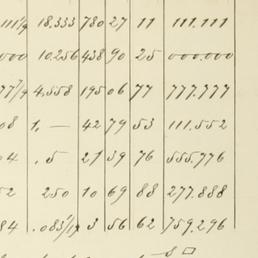 111 1/9 18.333 780 27 11 111.111
000 10.256 438 90 25 000.000
77 7/9 4.558 195 06 77 777.777
08 1, — 42 79 53 111.552
04 . 5 21 39 76 555.776
52 250 10 69 88 277.888
84 .083 1/4 3 56 62 759.296